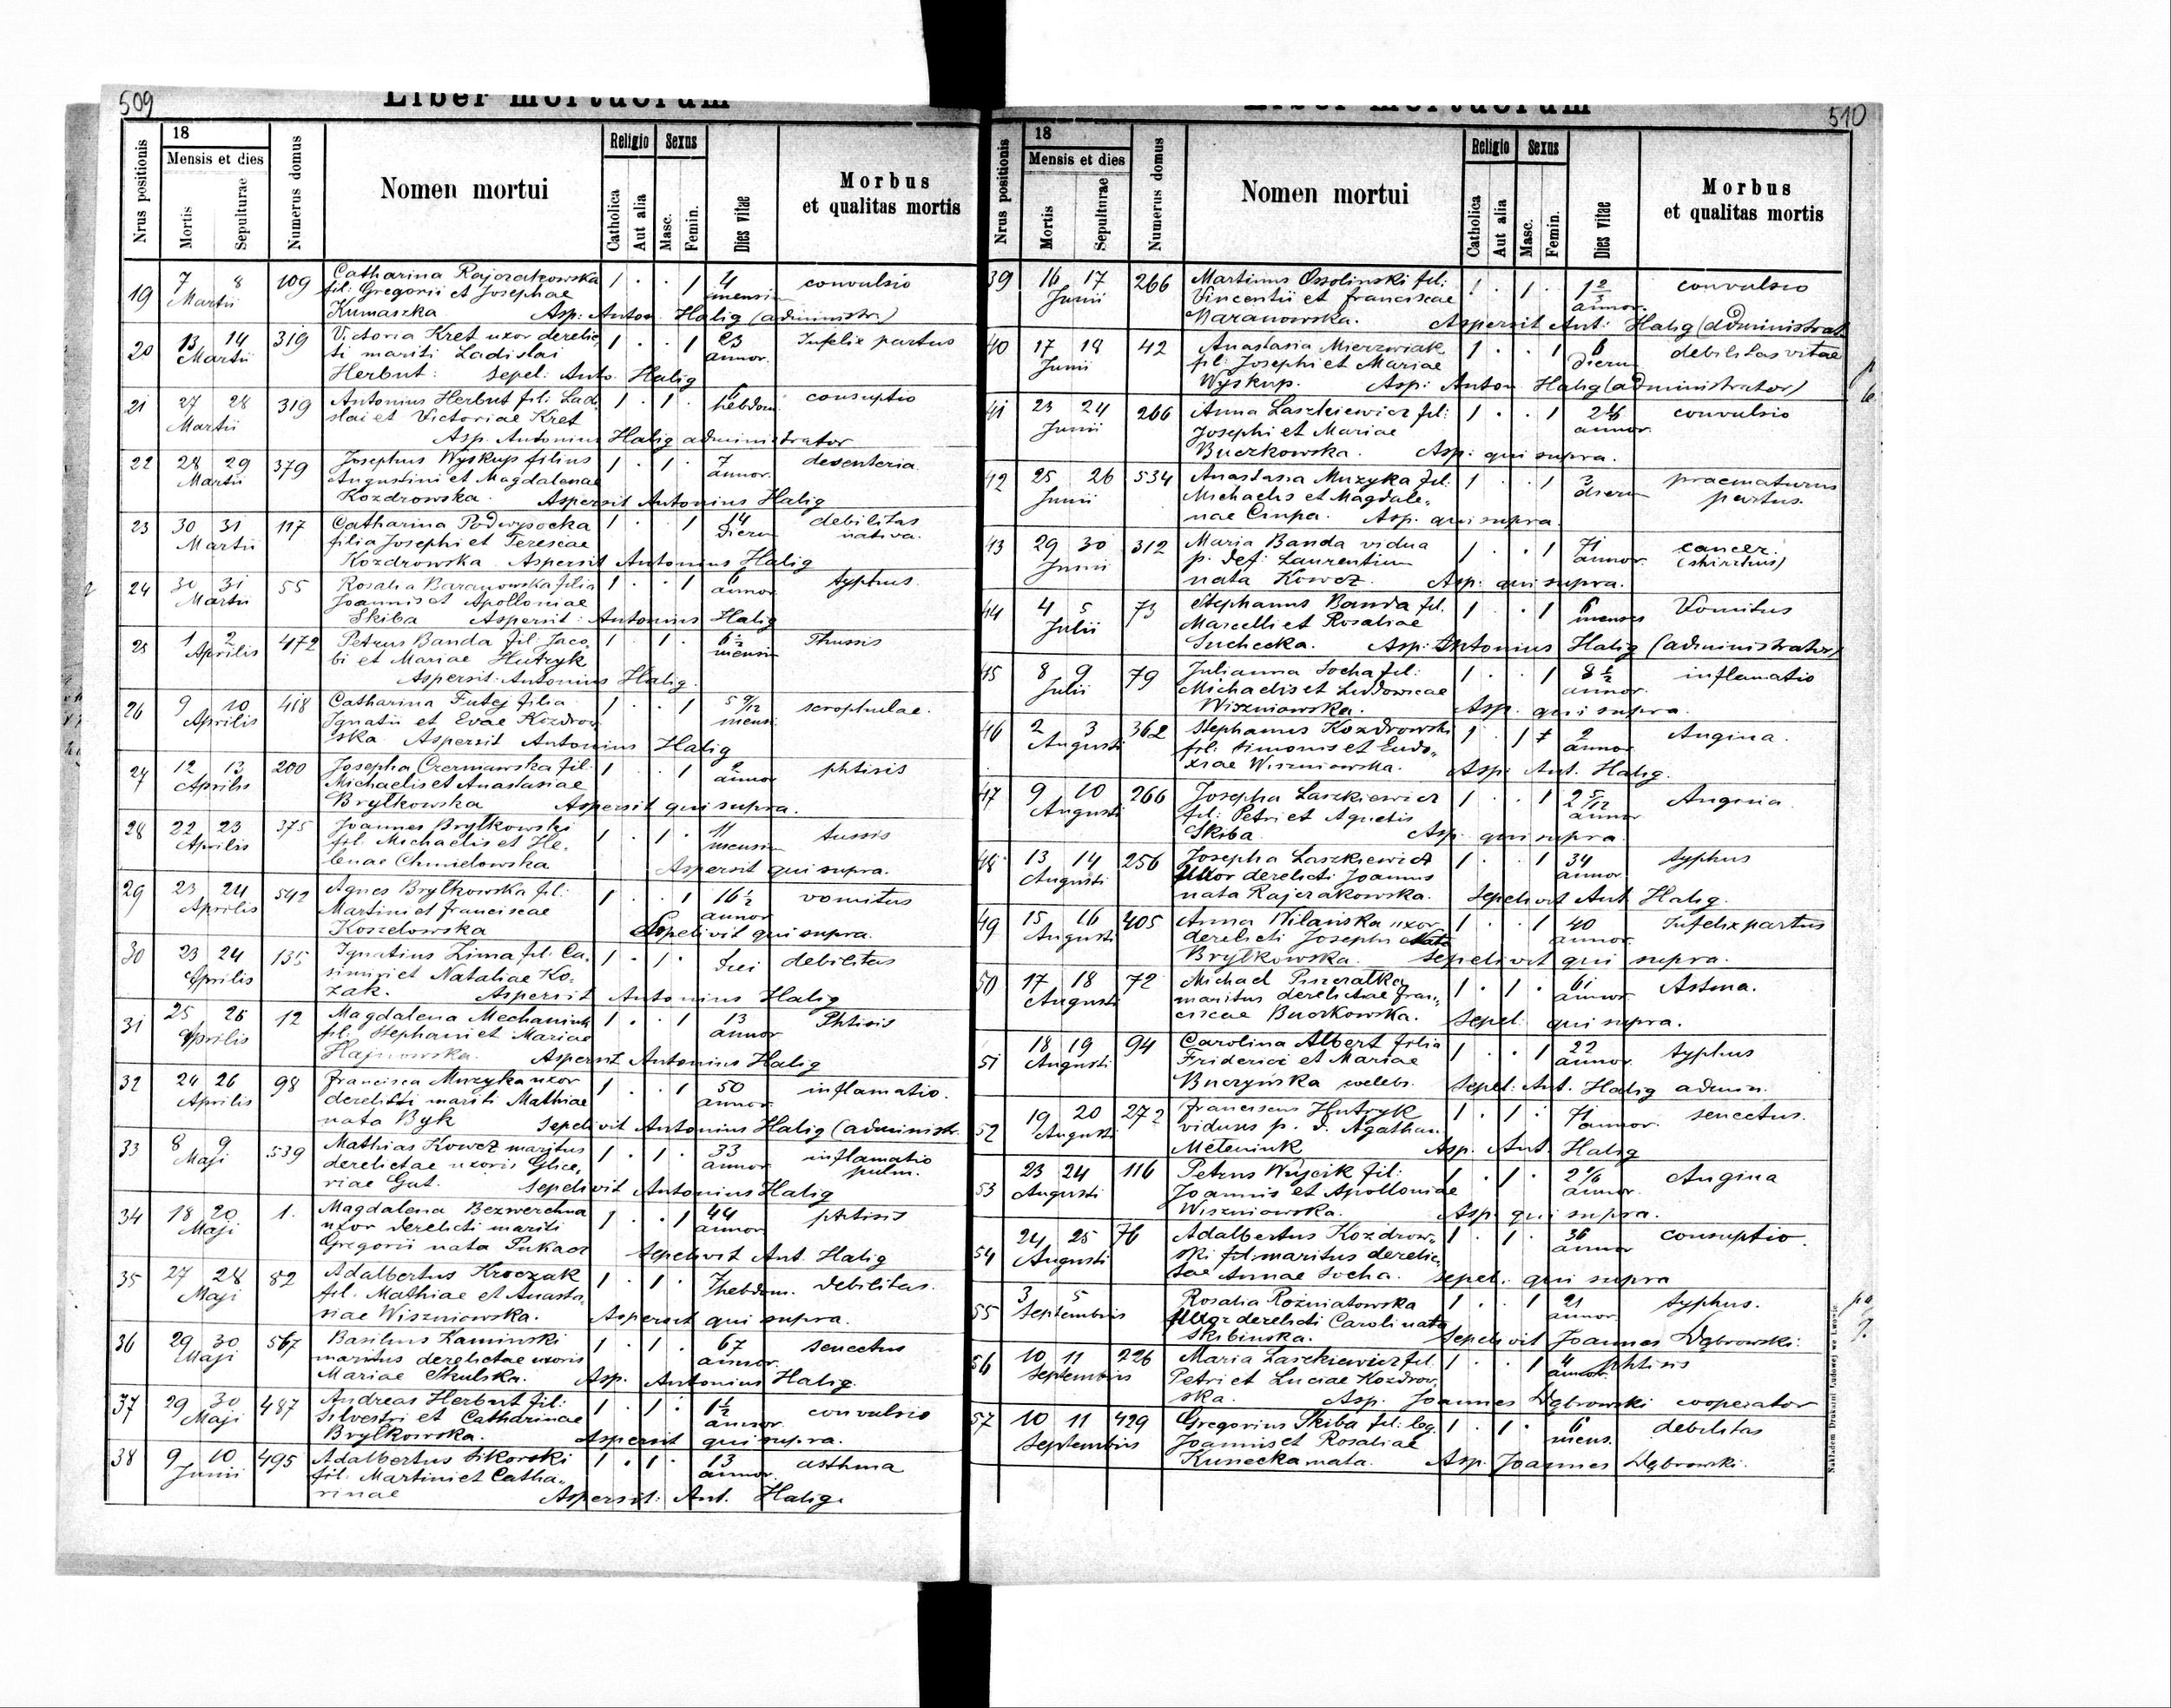 509
Liber mortuorum
Nrus positionis
18
Mensis et dies
Mortis
Sepulturae
Numerus domus
Nomen mortui
Religio
Catholica
Aut alia
Sexus
Masc.
Femin.
Dies vitae
Morbus
et qualitas mortis
19 7 8 109 Catharina Rajczakowska 1 . . 1 4 convulsio
Martii fil: Gregorii et Josephae mensiu
Kumaszka Asp: Anton Halig (administr.)
20 13 14 319 Victoria Kret uxor derelic, 1 . . 1 23 Infelix partus
Martii ti mariti Ladislai annor.
Herbut: Sepel: Anto. Halig
21 27 28 319 Antonius Herbut fil: Ladi 1 . 1 . 6 consuptio
Martii slai et Victoriae Kret hebdom
Asp. Antonius Halig administrator
22 28 29 379 Josephus Wyskup filius 1 . 1 . 7 desenteria
Martii Augustini et Magdalenae annor.
Kozdrowska. Aspersit Antonius Halig
23 30 31 117 Catharina Podwysocka 1 . . 1 14 debilitas
Martii filia Josephi et Teresiae dieru nativa.
Kozdrowska Aspersit Antonius Halig
24 30 31 55 Rosalia Baranowska filia 1 . . 1 6 typhus.
Martii Joannis et Apolloniae annor
Skiba Aspersit: Antonius Halig
25 1 2 472 Petrus Banda fil: Jaco, 1 . 1 . 6 1/2 Thussis
Aprilis bi et Mariae Hutryk mensiu
Aspersit: Antonius Halig.
26 9 10 418 Catharina Futej filia 1 . . 1 5 9/12 scrophulae.
Aprilis Ignatii et Evae Kozdrow mensi
ska Aspersit Antonius Halig
27 12 13 200 Josepha Czerniawska fil. 1 . . 1 2 phtisis
Aprilis Michaelis et Anastasiae annor
Brytkowska Aspersit qui supra.
28 22 23 375 Joannes Brytkowski 1 . 1 . 11 tussis
Aprilis fil. Michaelis et He, mensiu
lenae Chmielowska Aspersit qui supra.
29 23 24 542 Agnes Brytkowska fil: 1 . . 1 16 1/2 vomitus
Aprilis Martini et franciscae annor
Koszelowska Sepelivit qui supra.
30 23 24 135 Ignatius Zima fil: Ca, 1 . 1 . debilitas
Aprilis simiri et Nataliae Ko,
zak. Aspersit Antonius Halig
31 25 26 12 Magdalena Mechaniuk 1 . . 1 13 Phtisis
Aprilis fil. Stephani et Mariae annor
Hajnowska. Aspersit Antonius Halig
32 24 26 98 francisca Muzyka uxor 1 . . 1 50 inflamatio.
Aprilis derelicti mariti Mathiae annor
nata Byk Sepelivit Antonius Halig (administr.
33 8 9 539 Mathias Kowcz maritus 1 . 1 . 33 inflamatio
Maji derelictae uxoris Glice, annor pulm.
riae Gat. Sepelivit Antonius Halig
34 18 20 1. Magdalena Bezwerchna 1 . . 1 44 phtisis
Maji uxor derelicti mariti annor
Gregorii nata Pukacz Sepelivit Ant. Halig
35 27 28 82 Adalbertus Kroczak 1 . 1 . 7 Debilitas.
Maji fil. Mathiae et Anasta, hebdom.
siae Wiszniowska. Aspersit qui supra.
36 29 30 567 Basilius Kaminski 1 . 1 . 67 senectus
Maji maritus derelictae uxoris annor.
Mariae Skulska. Asp. Antonius Halig.
37 29 30 487 Andreas Herbut fil: 1 . 1 . 1 1/2 convulsio
Maji Silvestri et Catharinae annor.
Brytkowska. Aspersit qui supra.
38 9 10 495 Adalbertus Sikorski 1 . 1 . 13 asthma
Junii fil. Martini et Catha, annor.
rinae Aspersit: Ant. Halig.
510
Liber mortuorum
Nrus positionis
18
Mensis et dies
Mortis
Sepulturae
Numerus domus
Nomen mortui
Religio
Catholica
Aut alia
Sexus
Masc.
Femin.
Dies vitae
Morbus
et qualitas mortis
39 16 17 266 Martinus Ossolinski fil: 1 . 1 . 1 2/3 convulsio
Junii Vincentii et franciscae annor.
Baranowska. Aspersit Ant: Halig (administrat.
40 17 18 42 Anastasia Mierzwiak 1 . . 1 6 debilitas vitae
Junii fil: Josephi et Mariae dieru
Wyskup. Asp: Anton Halig (administrator)
41 23 24 266 Anna Laszkiewicz fil: 1 . . 1 convulsio
Junii Josephi et Mariae annor.
Buczkowska. Asp: qui supra.
42 25 26 534 Anastasia Muzyka fil: 1 . . 1 3 praematurus
Junii Michaelis et Magdale, dieru partus.
nae Ciupa. Asp. qui supra.
43 29 30 312 Maria Banda vidua 1 . . 1 71 cancer.
Junii p. def: Laurentium annor. (skirrhus)
nata Kowcz. Asp: qui supra.
44 4 5 73 Stephanus Banda fil. 1 . . 1 6 Vomitus
Julii Marcelli et Rosaliae menses
Suchecka. Asp: Antonius Halig (administrator)
45 8 9 79 Julianna Socha fil: 1 . . 1 8 1/2 inflamatio
Julii Michaelis et Ludowicae annor.
Wiszniowska. Asp. qui supra.
46 2 3 362 Stephanus Kozdrowski 1 . 1 2 Angina.
Augusti fil: Simonis et Eudo, annor
xiae Wiszniowska. Asp: Ant. Halig.
47 9 10 266 Josepha Laszkiewicz 1 . . 1 2 5/12 Angina.
Augusti fil: Petri et Agnetis annor
Skiba. Asp. qui supra.
48 13 14 256 Josepha Laszkiewicz 1 . . 1 34 typhus
Augusti Uxor derelicti Joannis annor
nata Rajczakowska. Sepelivit Ant Halig.
49 15 16 405 Anna Wilańska uxor 1 . . 1 40 Infelix partus
Augusti derelicti Josephi nata annor.
Brytkowska. Sepelivit qui supra.
50 17 18 72 Michael Pszczatka 1 . 1 . 61 Astma.
Augusti maritus derelictae fran, annor
ciscae Buczkowska. Sepel: qui supra.
51 18 19 94 Carolina Albert filia 1 . . 1 22 typhus
Augusti Friderici et Mariae annor.
Buczyńska celebs. Sepel: Ant. Halig admin.
52 19 20 272 franciscus Hutryk 1 . 1 . 71 senectus.
Augusti viduus p. d. Agatham annor.
Meteniuk Asp. Ant. Halig
53 23 24 116 Petrus Wujcik fil: 1 . 1 . 2 1/6 Angina
Augusti Joannis et Apolloniae annor.
Wiszniowska. Asp. qui supra.
54 24 25 76 Adalbertus Kozdrow, 1 . 1 . 36 consuptio.
Augusti ski fil maritus derelic, annor
tae Annae Socha. sepel. qui supra
55 3 5 Rosalia Rożniatowska 1 . . 1 21 typhus.
Septembris Uxor derelicti Caroli nata annor.
Skibinska. Sepelivit Joannes Dąbrowski:
56 10 11 226 Maria Laszkiewicz fil. 1 . . 1 4 Phtisis
Septembris Petri et Luciae Kozdrow, annor.
ska. Asp. Joannes Dąbrowski cooperator
57 10 11 429 Gregorius Skiba fil: leg. 1 . 1 . 6 debilitas
Septembris Joannis et Rosaliae mens.
Kunecka nata. Asp. Joannes Dąbrowski.
Nakładem Drukarni Ludowej we Lwowie.